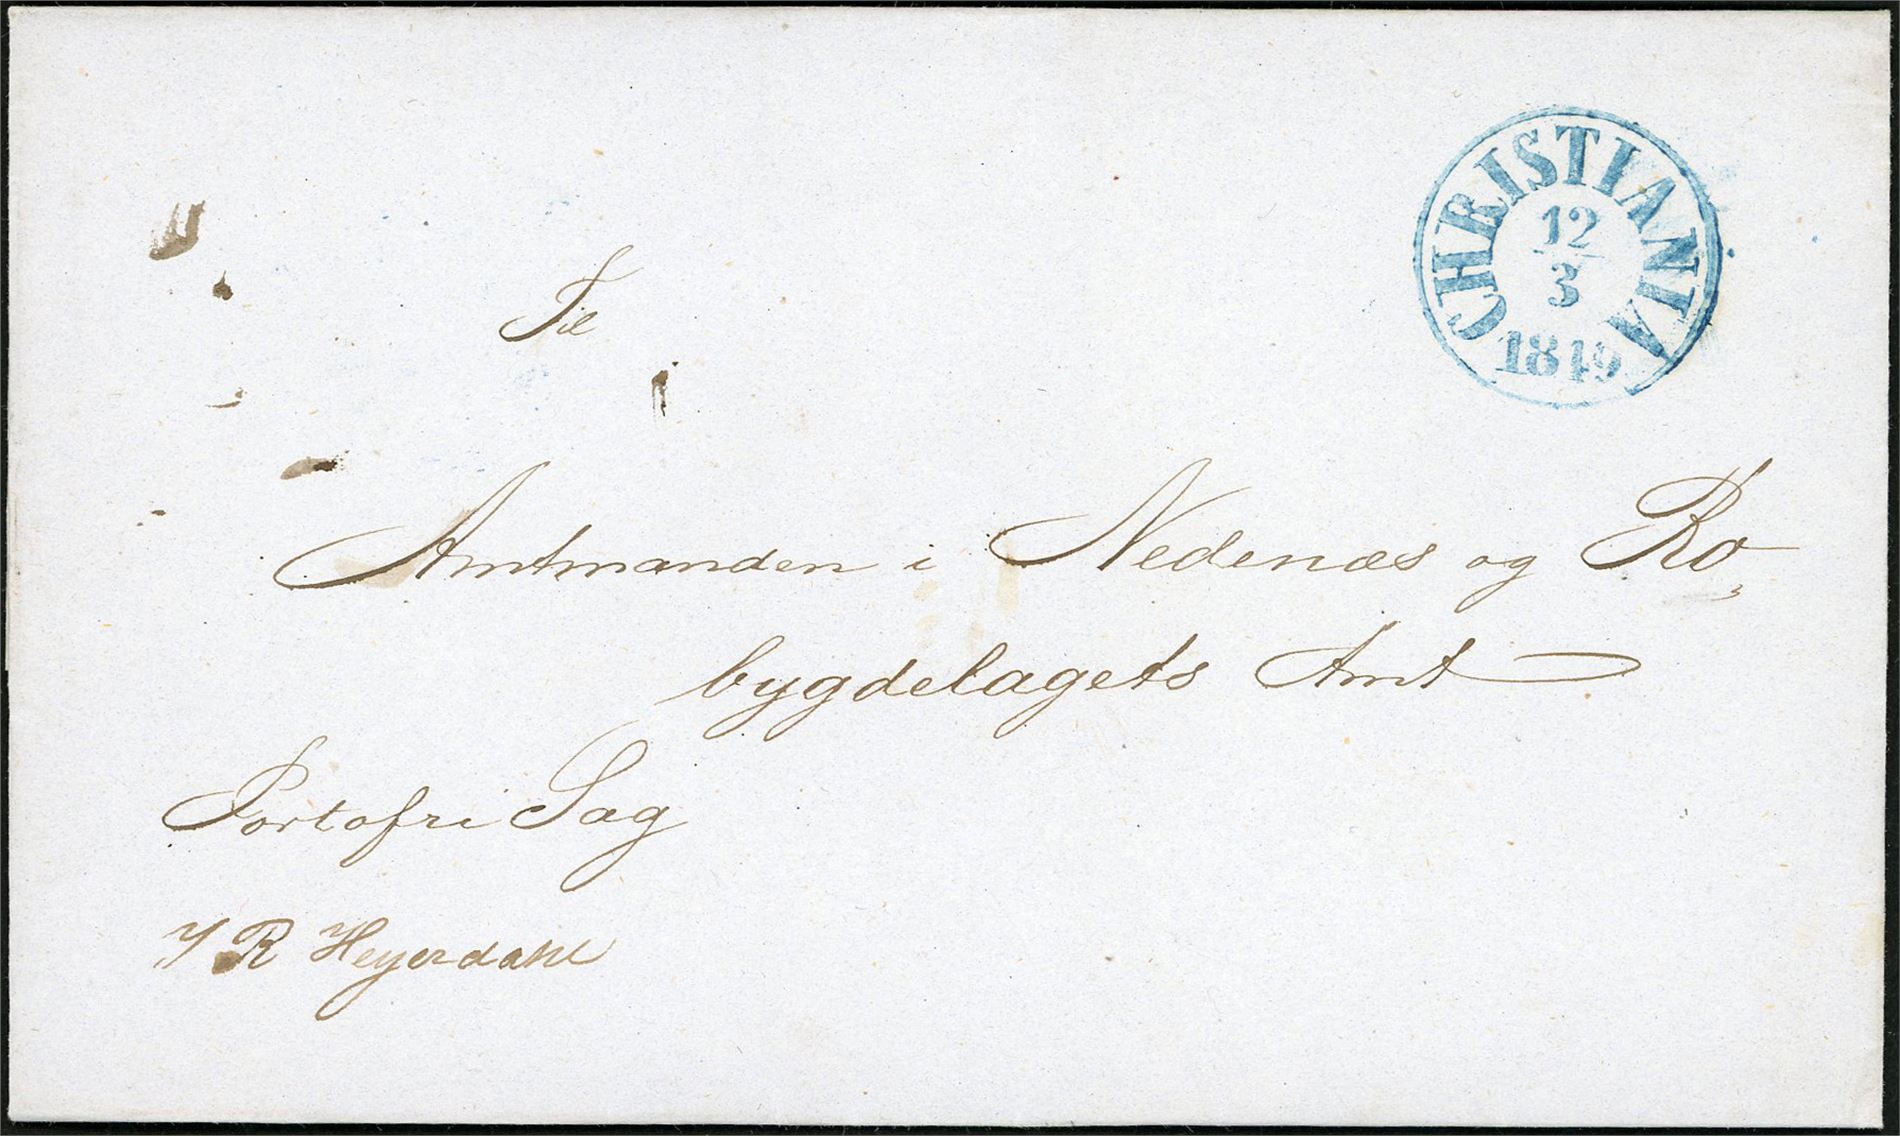 CHRISTIANIA
12
3
1849
Til
Amtmanden i Nedenæs og Ro-
bygdelagets Amt
Portofri Sag
J R Heyerdahl